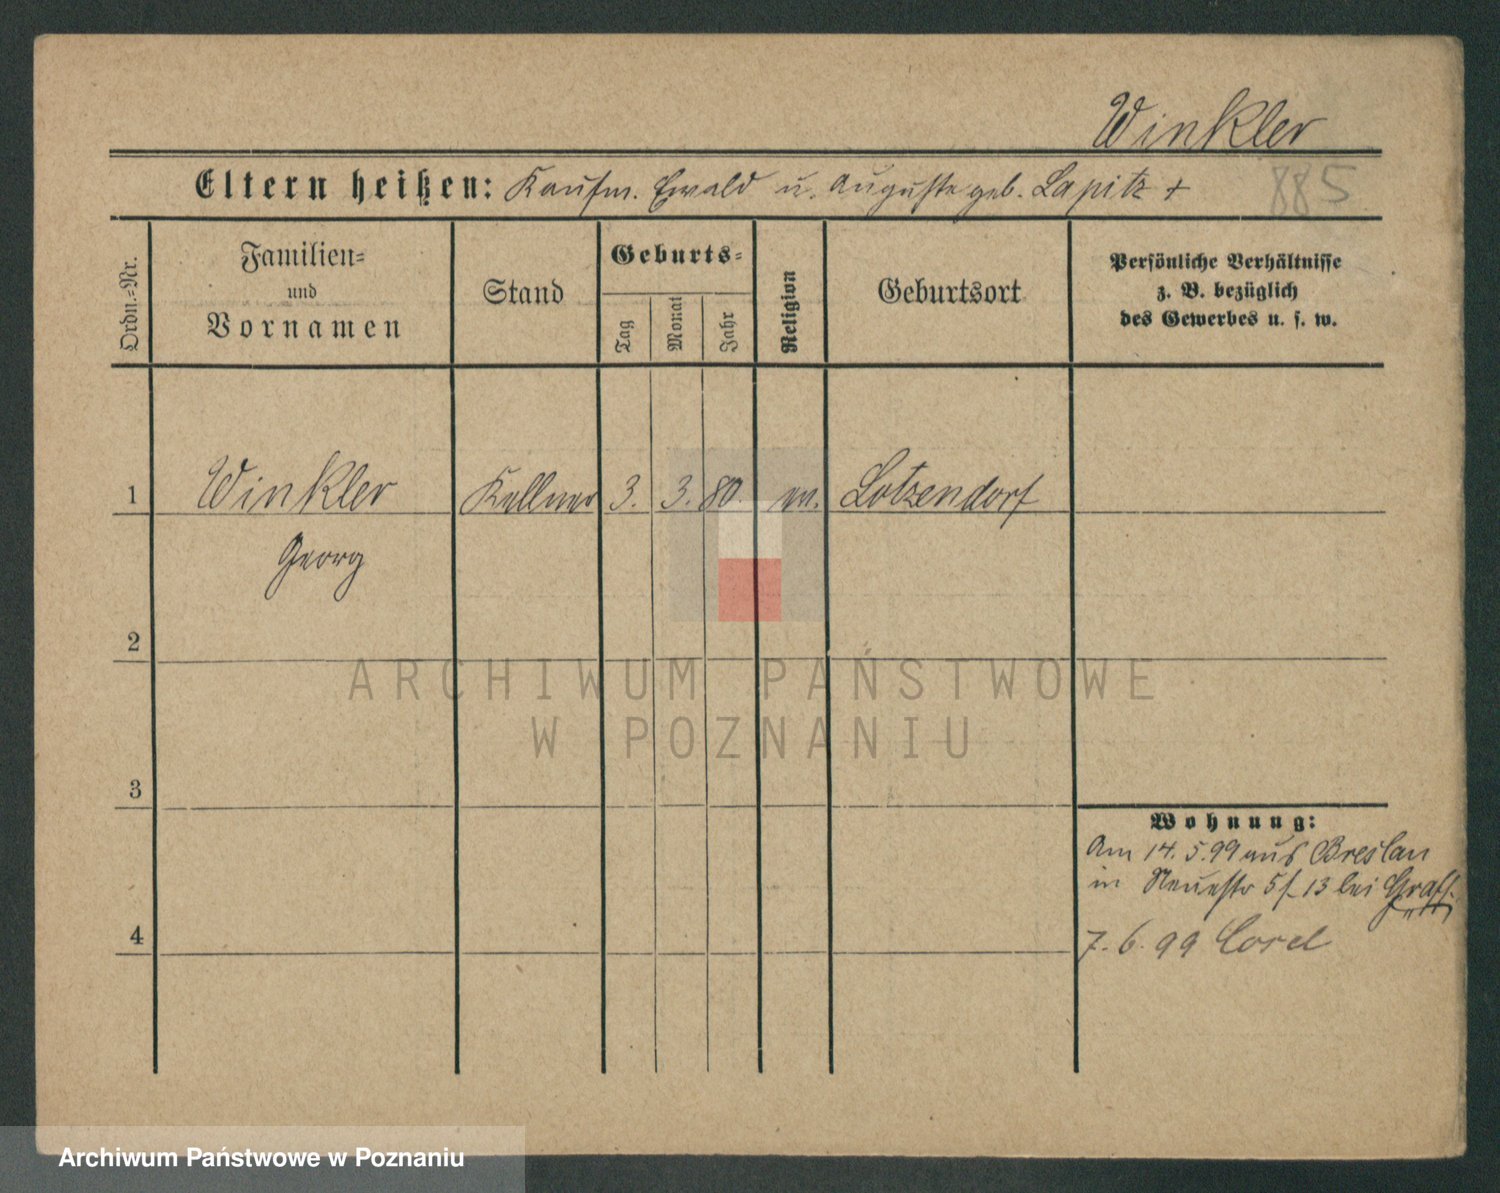 Winkler
Eltern heißen: Kaufm. Ewald u. Auguste geb. Lapitz +
885
Ordn.-Nr.
Familien-
und
Vornamen
Stand
Geburts-
Tag
Monat
Jahr
Religion
Geburtsort
Persönliche Verhältnisse
z. B. bezüglich
des Gewerbes u. s. w.
1
Winkler
Kellner
3.
3.
80.
Lotzendorf
Georg
2
ARCHIWUM PAŃSTWOWE
W POZNANIU
3
Wohnung:
Am 14. 5. 99 aus Breslau
in Neuestr 5 13 bei
4
7. 6. 99
Archiwum Państwowe w Poznaniu